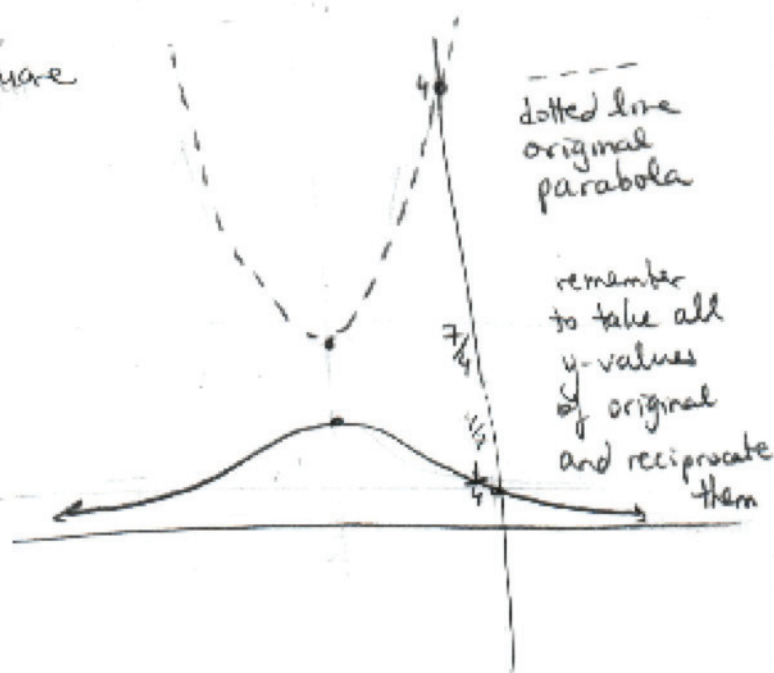 4
dotted line
original
parabola
remember
to take all
y-values
of original
and reciprocate
them
7/4
1/4